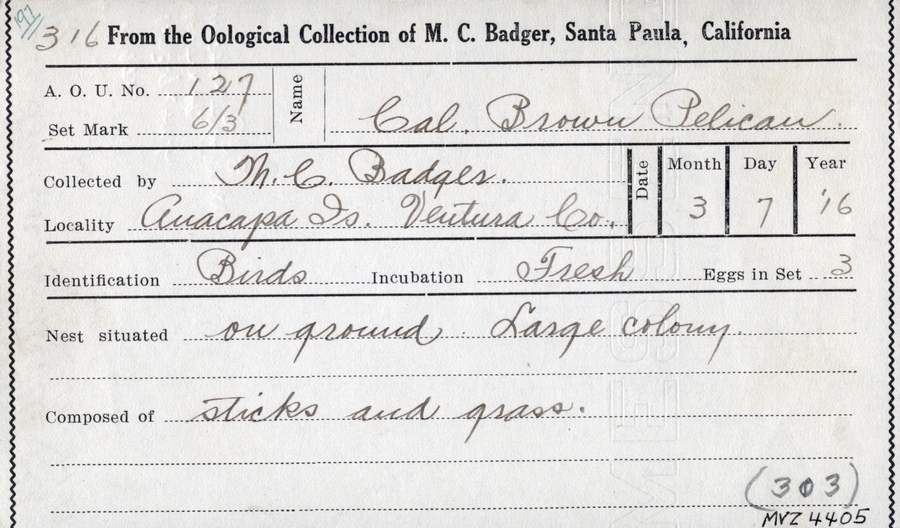 197
316 From the Oological Collection of M. C. Badger, Santa Paula, California
A. O. U. No. 127
Set Mark 6/3
Name Cal. Brown Pelican.
Collected by M. C. Badger.
Locality Anacapa Is. Ventura Co.
Date Month Day Year
3 7 '16
Identification Birds Incubation Fresh Eggs in Set 3
Nest situated on ground. Large colony.
Composed of sticks and grass.
(303)
MVZ 4405